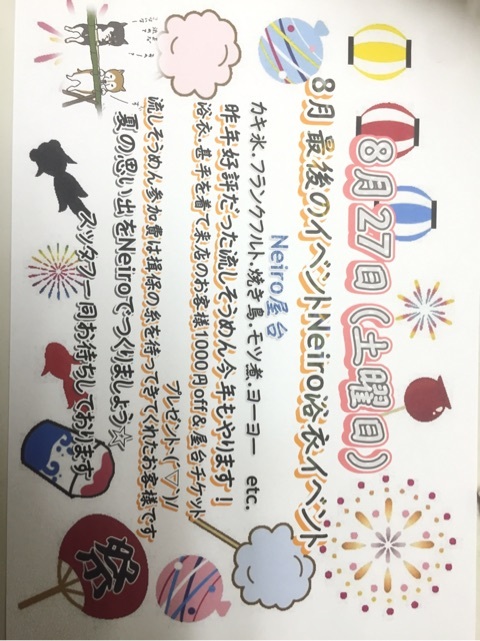 8月27日(土曜日)
8月最後のイベントNeiro浴衣イベント
Neiro屋台
カキ氷.フランクフルト.焼き鳥.モツ煮.ヨーヨー etc.
昨年好評だった流しそうめん今年もやります!
浴衣.甚平を着て来店のお客様1000円off&屋台チケット
プレゼント、(*´▽`)ノ
流しそうめん参加費は揖保の糸を待ってきてくれたお客様です
夏の思い出をNeiroでつくりましょう☆
スッタフ一同お待ちしております
祭